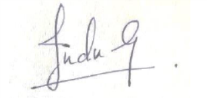 Indu G.